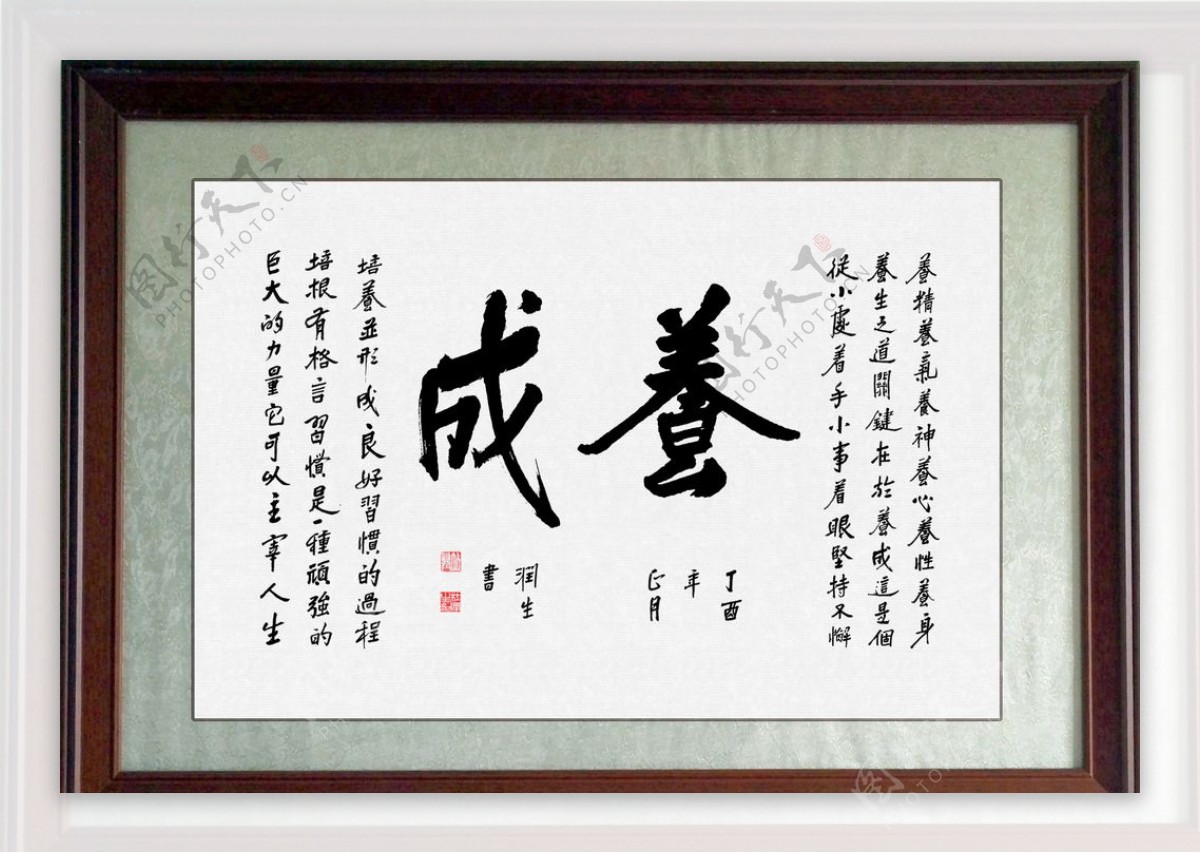 養精養氣養神養心養性養身
養生之道關鍵在於養成這是個
從小處着手小事着眼堅持不懈
養成
丁酉
年
正月
潤生
書
培養並形成良好習慣的過程
培根有格言習慣是一種頑強的
巨大的力量它可以主宰人生
图行天下
PHOTOPHOTO.CN
图行天下
PHOTOPHOTO.CN